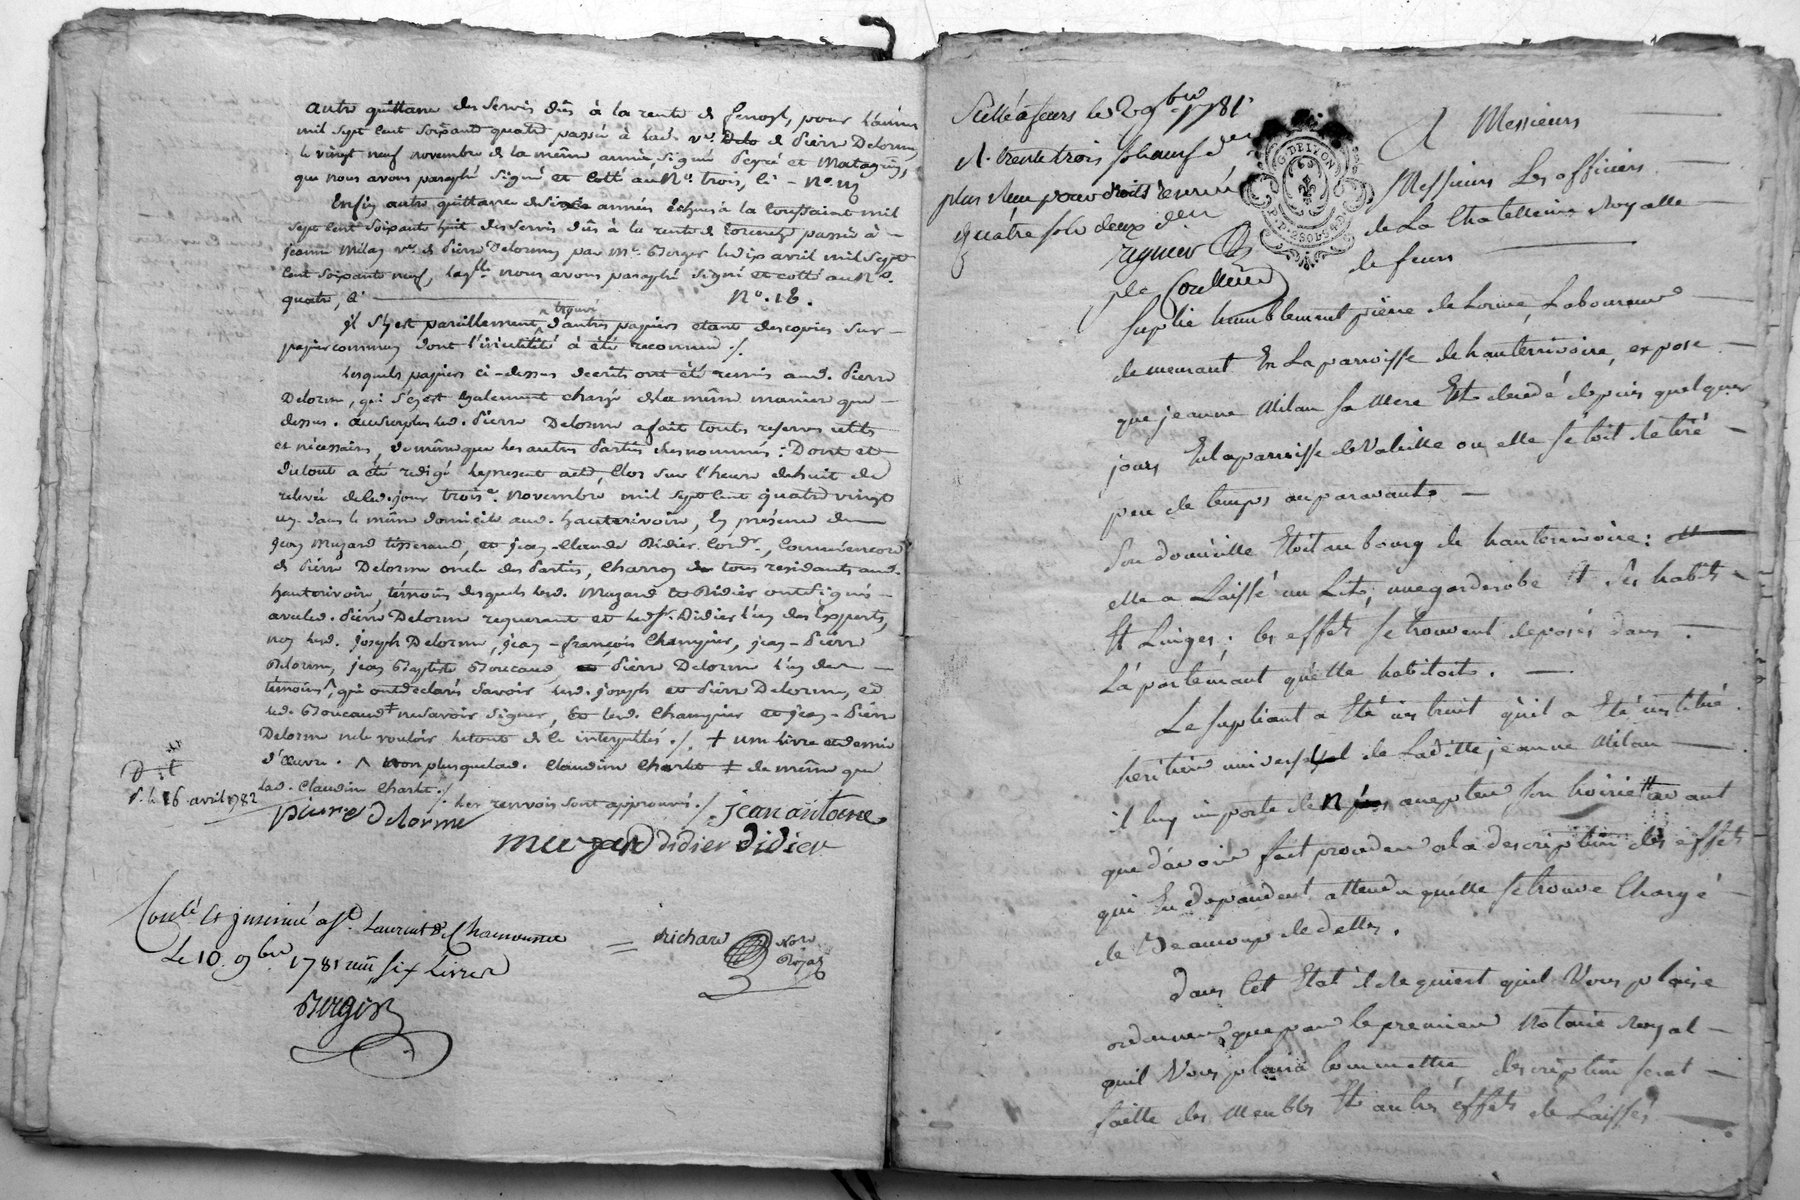 autre quittance des servis dûs à la rente de , pour l'année
mil sept cent soixante quatre passée à lad. ve. de Pierre Delorme,
le vingt neuf novembre de la même année signé et Matagrin,
que nous avons paraphé signé et cotté au No. trois, ci - No.
Enfin autre quittance de six années échus à la toussaint mil
sept cent soixante huit des servis dûs à la rente de passée à
jeanne Milan ve. de Pierre Delorme, par Me. Berger le dix avril mil sept
cent soixante neuf, laqlle. nous avons paraphé signé et cotté au No.
quatre, ci No. 18.
Il s'est pareillement trouvé d'autres papiers etant des copies sur
papier commun dont l'inutilité à été reconnue ./.
Lesquels papiers ci-dessus décrits ont été remis aud. Pierre
Delorme, qui s'est également chargé de la même manière que
dessus. au surplus led. Pierre Delorme a fait toutes reserves utiles
et nécessaires, de même que les autres Parties desnommés : Dont et
du tout a été redigé le present acte, Clos sur l'heure de huit de
relevée de led. jour trois. novembre mil sept cent quatre vingt
un dans le même domicile aud. hauterivoire, En présence de
jean Muzard tisserand, et jean-Claude Didier Cordr.,
de Pierre Delorme oncle des Parties, Charron tous residants aud.
hauterivoire, témoins desquels led. Muzard et Didier ont signés
avec led. Pierre Delorme requerant et led. sr. Didier l'un des Experts,
non led. joseph Delorme, jean-françois Champier, jean-Pierre
Delorme, jean Baptiste Boucaud Pierre Delorme l'un des
témoins, qui ont déclarés savoir led. joseph et Pierre Delorme, et
led. Boucaud ne savoir signer, Et led. Champier et jean-Pierre
Delorme ne le vouloir le tout de ce interpellés ./. + une livre et demie
d'œuvre. ^ non plus que lad. Claudine Charlet ‡ de même que
lad. Claudine Charlet ./. les renvois sont approuvés ./. jean antoine
16 avril 1782
pierre delorme
muzard didier didier
Conlé et insinué a St. Laurent de Chamousset
Le 10 9bre 1781 six livres
Berger
richard Nore. Royal
Scellé a feurs le 2 9bre 1781
trente trois sols neuf den
plus pour droits
quatre sols deux den
G. DE LYON
A Messieurs
Messieurs Les officiers
de La Chatellenie Royalle
de feurs
Suplie humblement pierre de Lorme, Laboureur
demeurant En La parroisse de hauterrivoire, expose
que jeanne Milan sa Mere Est decedé depuis quelques
jours En la parroisse de Valeille ou elle s'etoit retiré
peu de temps auparavant.
Son domicille Etoit au bourg de hauterrivoire :
elle a Laissé un Lit, une garderobe Et ses habits
Et Linges ; les effets se trouvent deposés dans
L'apartemant qu'elle habitoit.
Le supliant a Eté instruit qu'il a Eté institué
heritier universel de Laditte jeanne Milan
il luy importe de n accepter son hoirie avant
que d'avoir fait proceder a la description des effets
qui En dependent attendu qu'elle se trouve Chargé
de Beaucoup de dettes.
dans Cet Etat il requiert qu'il Vous plaise
ordonner, que par le premier Notaire Royal
qu'il Vous plaira Commettre description serat
faitte des Meubles Et autres effets de Laissés